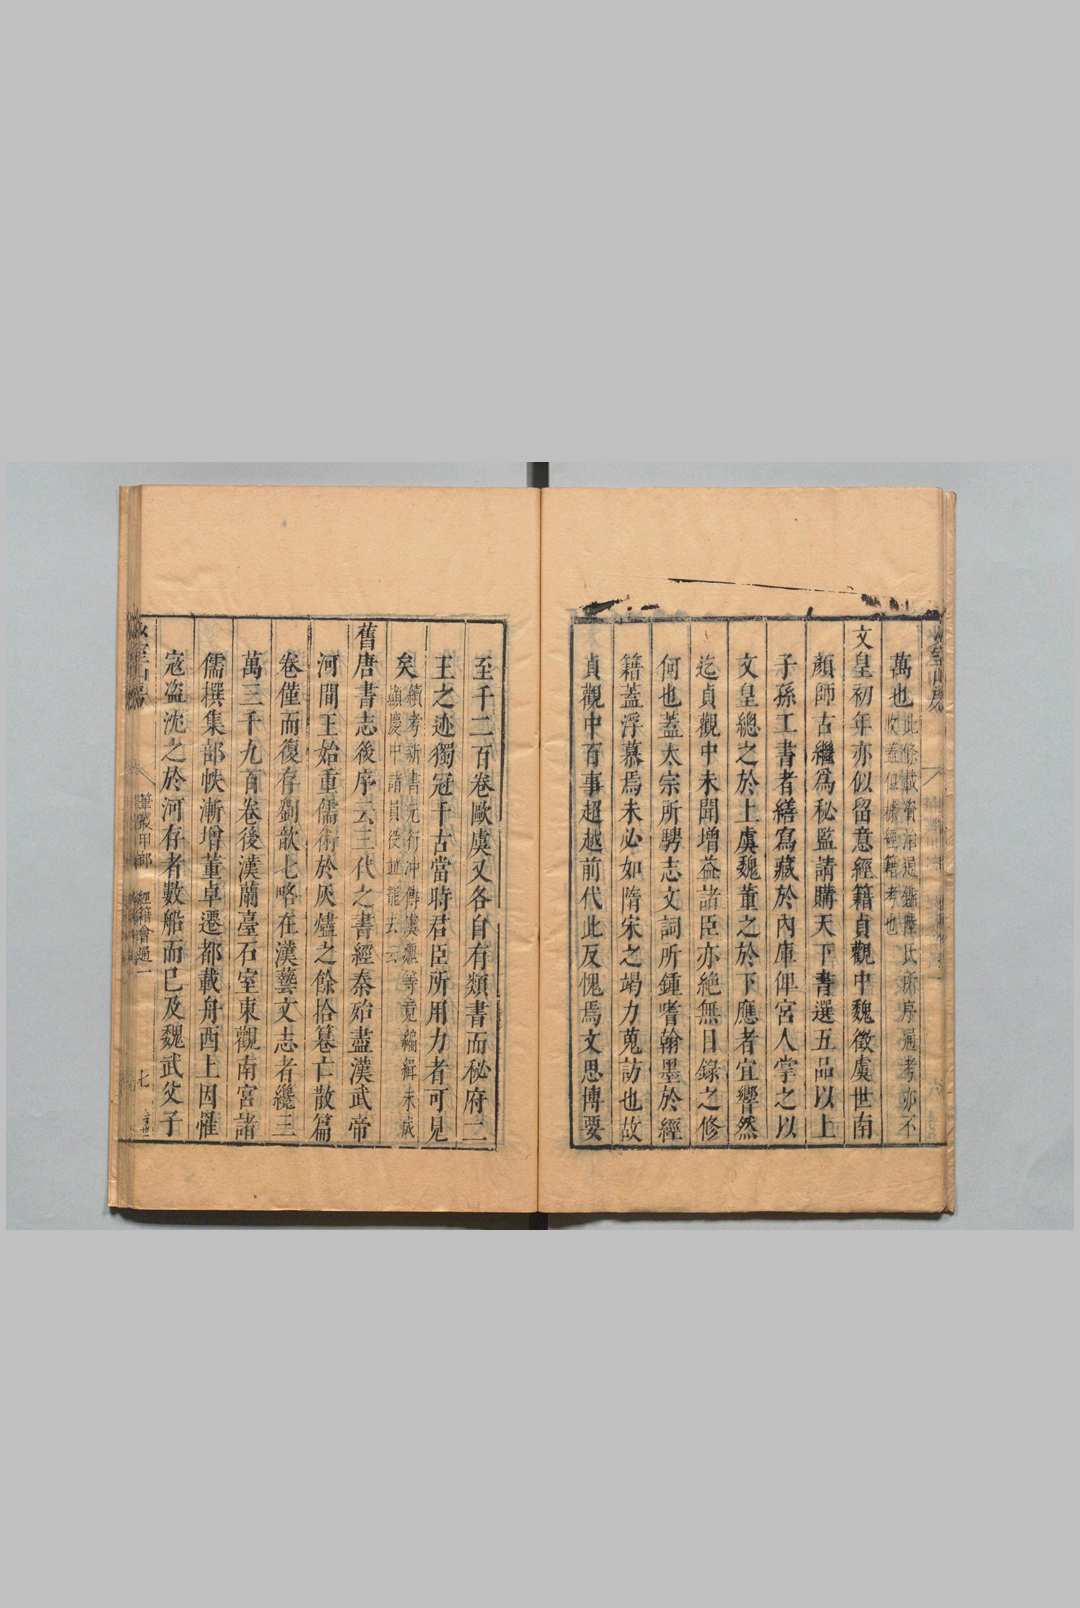 萬也此條載資治通鑑陳氏所序通考亦不
收蓋但據經籍考也
文皇初年亦似留意經籍貞觀中魏徵虞世南
顏師古繼為秘監請購天下書選五品以上
子孫工書者繕寫藏於內庫俾宮人掌之以
文皇總之於上虞魏董之於下應者宜響然
迄貞觀中未聞增益諸臣亦絶無目錄之修
何也蓋太宗所騁志文詞所鍾嗜翰墨於經
籍蓋浮慕焉未必如隋宋之竭力蒐訪也故
貞觀中百事超越前代此反愧焉文思博要
至千二百卷歐虞又各自有類書而秘府二
王之迹獨冠千古當時君臣所用力者可見
矣續考新書元行沖傳漢魏等竟編緝未成
顯慶中諸員從並罷去云
舊唐書志後序云三代之書經秦殆盡漢武帝
河間王始重儒術於灰燼之餘拾纂亡散篇
卷僅而復存劉歆七略在漢藝文志者纔三
萬三千九百卷後漢蘭臺石室東觀南宮諸
儒撰集部帙漸增董卓遷都載舟西上因罹
寇盜沈之於河存者數船而已及魏武父子
少室山房
筆叢甲部 經籍會通一
七